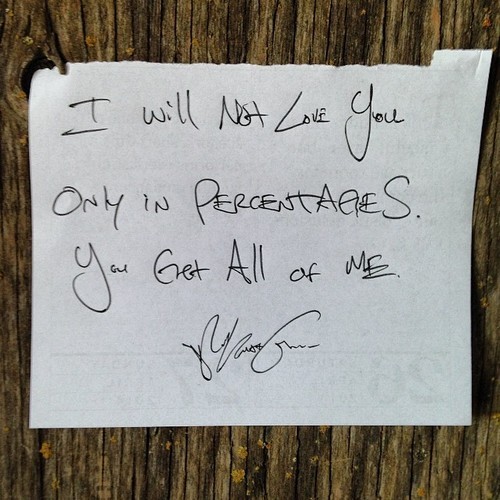 I will Not Love You
Only in PERCENTAGES.
You Get All of ME.